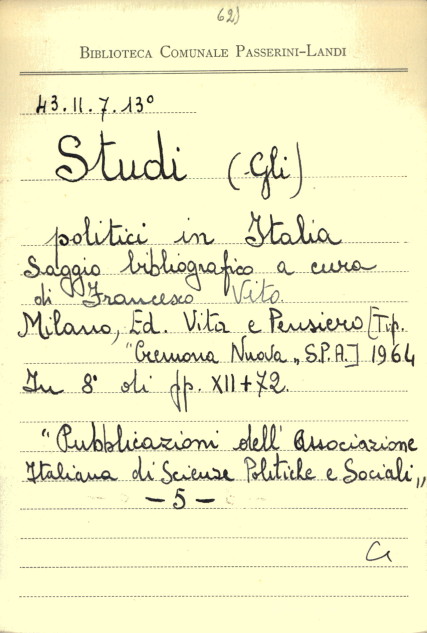 62)
BIBLIOTECA COMUNALE PASSERINI-LANDI
43.II.7.13°
Studi (Gli)
politici in Italia
Saggio bibliografico a cura
di Francesco Vito.
Milano, Ed. Vita e Pensiero [Tip.
"Cremona Nuova„ S.P.A.] 1964
In 8° di pp. XII+72.
"Pubblicazioni dell'Associazione
Italiana di Scienze Politiche e Sociali„
- 5 -